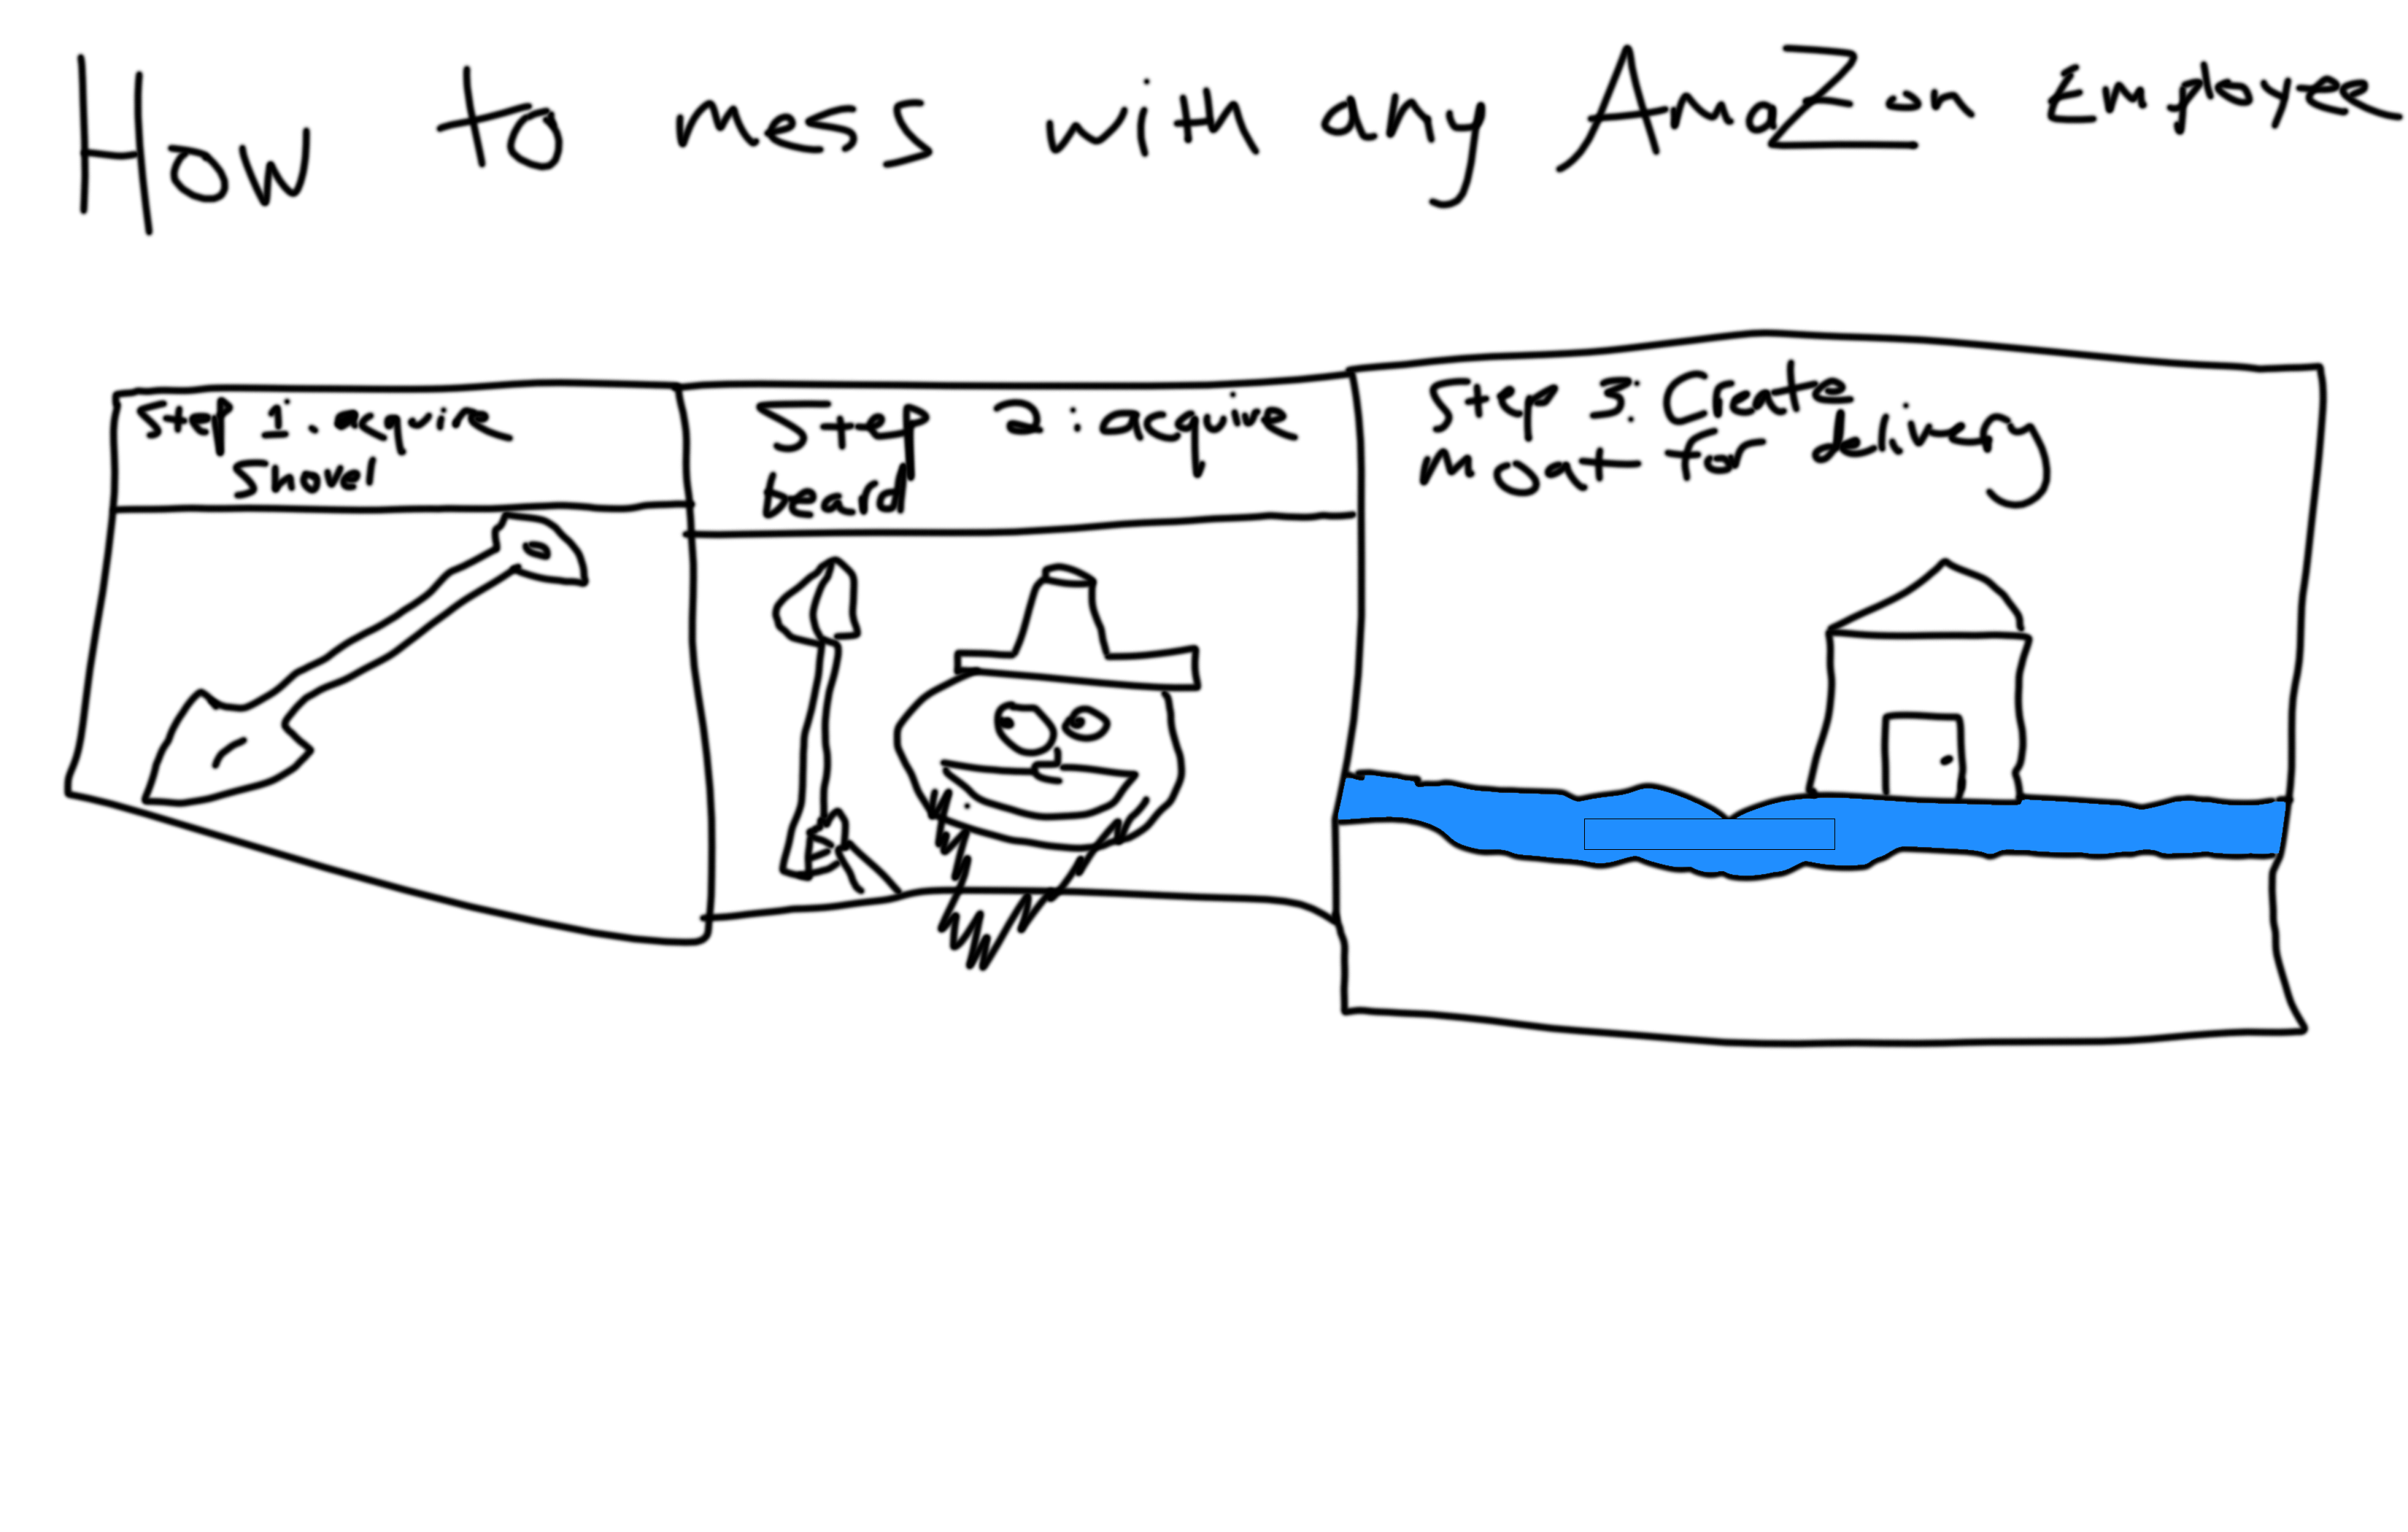 How to mess with any AmaZon Employee
Step 1. acquire
Shovel
Step 2: acquire
beard
Step 3: Create
moat for delivery